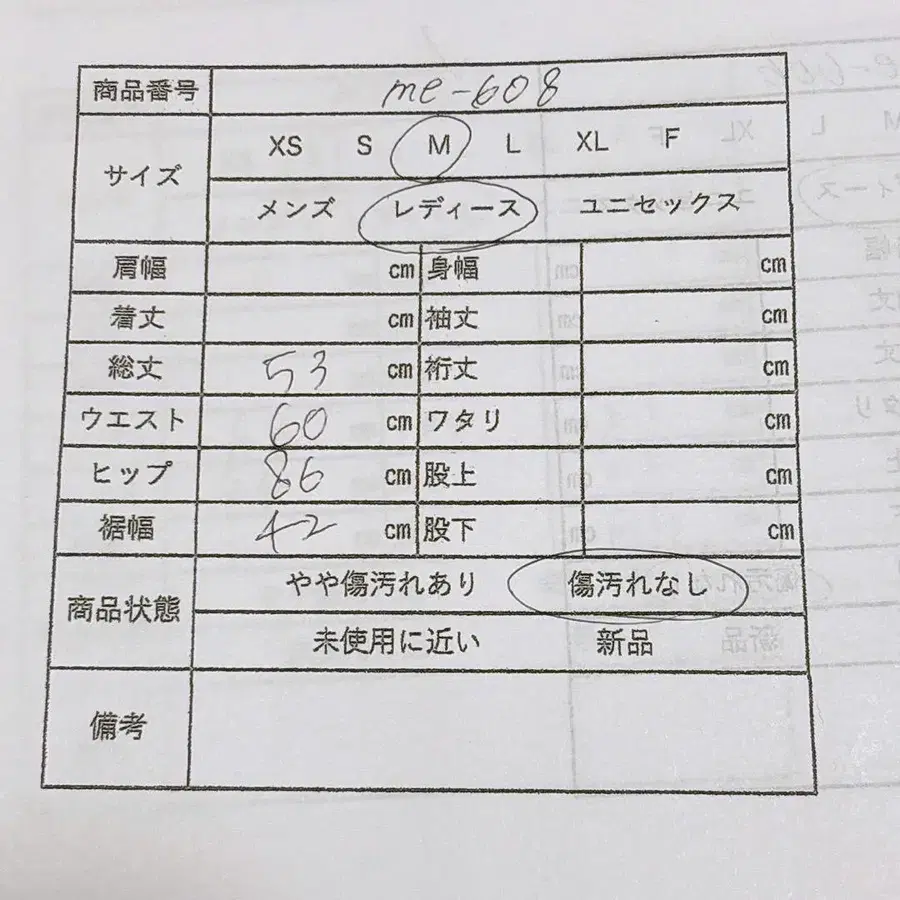 商品番号 me-608
サイズ XS S M L XL F
メンズ レディース ユニセックス
肩幅 cm 身幅 cm
着丈 cm 袖丈 cm
総丈 53 cm 裄丈 cm
ウエスト 60 cm ワタリ cm
ヒップ 86 cm 股上 cm
裾幅 42 cm 股下 cm
商品状態 やや傷汚れあり 傷汚れなし
未使用に近い 新品
備考